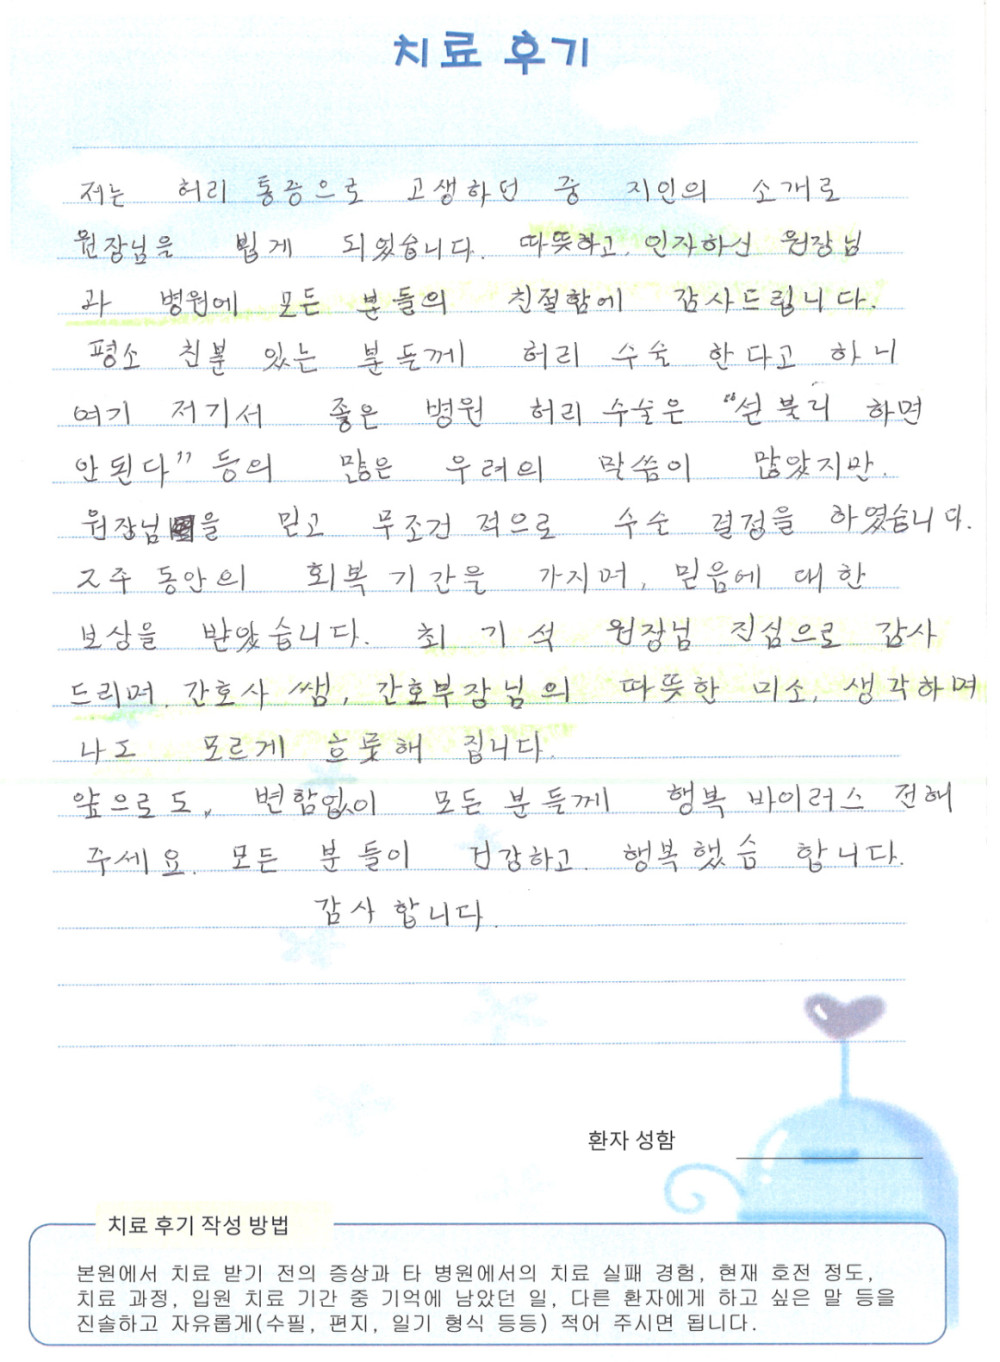 치료 후기
저는 허리 통증으로 고생하던 중 지인의 소개로
원장님을 뵙게 되었습니다. 따뜻하고, 인자하신 원장님
과 병원에 모든 분들의 친절함에 감사드립니다.
평소 친분 있는 분들께 허리 수술 한다고 하니
여기 저기서 좋은 병원 허리 수술은 "섣불리 하면
안된다" 등의 많은 우려의 말씀이 많았지만,
원장님을 믿고 무조건 적으로 수술 결정을 하였습니다.
2주 동안의 회복 기간을 가지며, 믿음에 대한
보상을 받았습니다. 최 기 석 원장님 진심으로 감사
드리며, 간호사 쌤, 간호부장님의 따뜻한 미소, 생각하며
나도 모르게 흐뭇해 집니다.
앞으로도, 변함없이 모든 분들께 행복 바이러스 전해
주세요. 모든 분 들이 건강하고. 행복했슴 합니다.
감사 합니다.
환자 성함
치료 후기 작성 방법
본원에서 치료 받기 전의 증상과 타 병원에서의 치료 실패 경험, 현재 호전 정도,
치료 과정, 입원 치료 기간 중 기억에 남았던 일, 다른 환자에게 하고 싶은 말 등을
진솔하고 자유롭게(수필, 편지, 일기 형식 등등) 적어 주시면 됩니다.